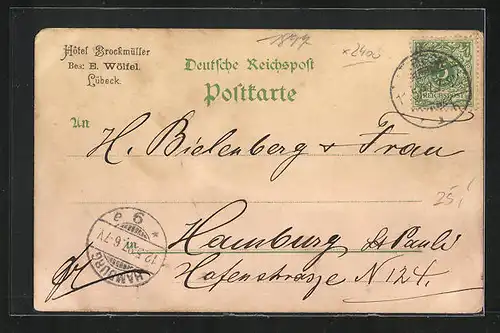 1897
x2400
Hôtel Brockmüller
Bes: E. Wölfel.
Lübeck.
Deutsche Reichspost
Postkarte
5
REICHSPOST
An
H. Bielenberg & Frau
25,-
in Hamburg St Pauli
Hafenstrasze N 124.
HAMBURG
12.5.97.6-7V
* 9 a